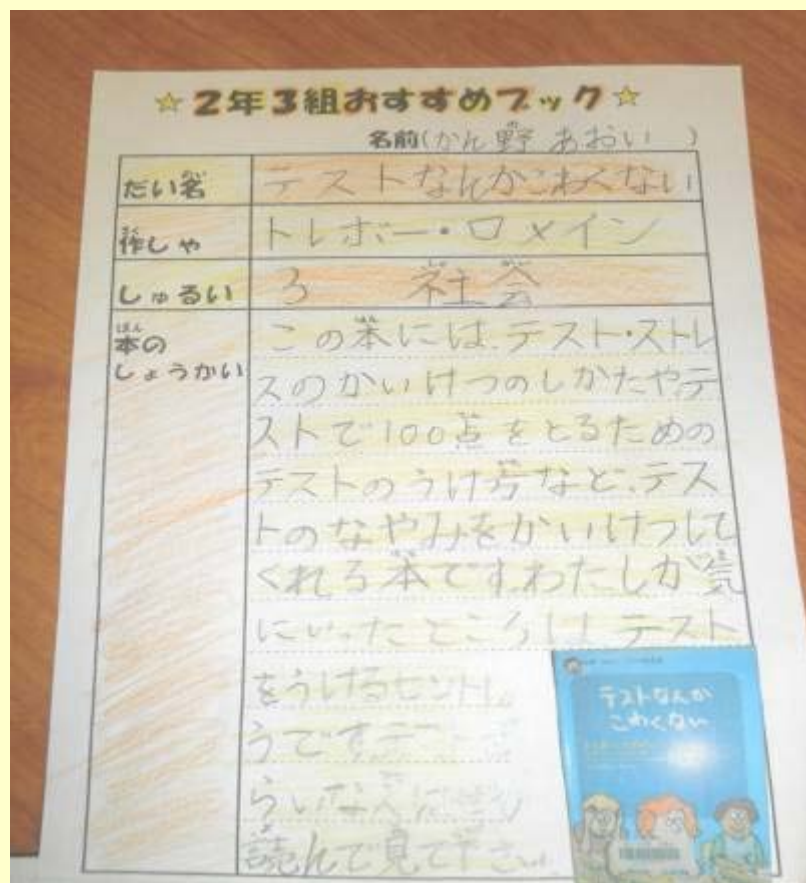 ☆2年3組おすすめブック☆
名前(かん野 あおい )
だい名 テストなんかこわくない
作しゃ トレボー・ロメイン
しゅるい 3 社会
本の この本には、テスト・ストレ
しょうかい スのかいけつのしかたや、テ
ストで100点をとるための
テストのうけ方など、テス
トのなやみをかいけつして
くれる本です。わたしが気
にいったところは、テスト
をうける
うです。
らいな人に
読んで見て下さい。
テストなんか
こわくない